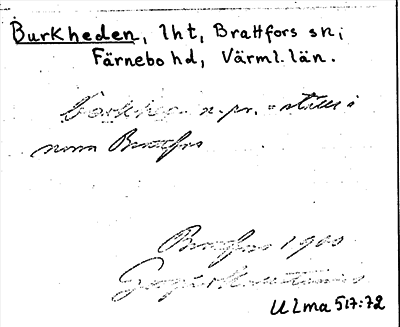 Burkheden, lht, Brattfors sn;
Färnebo hd, Värml. län.
n. pr. ställe i
norra Brattfors
Brattfors 1900
Ulma 517:72